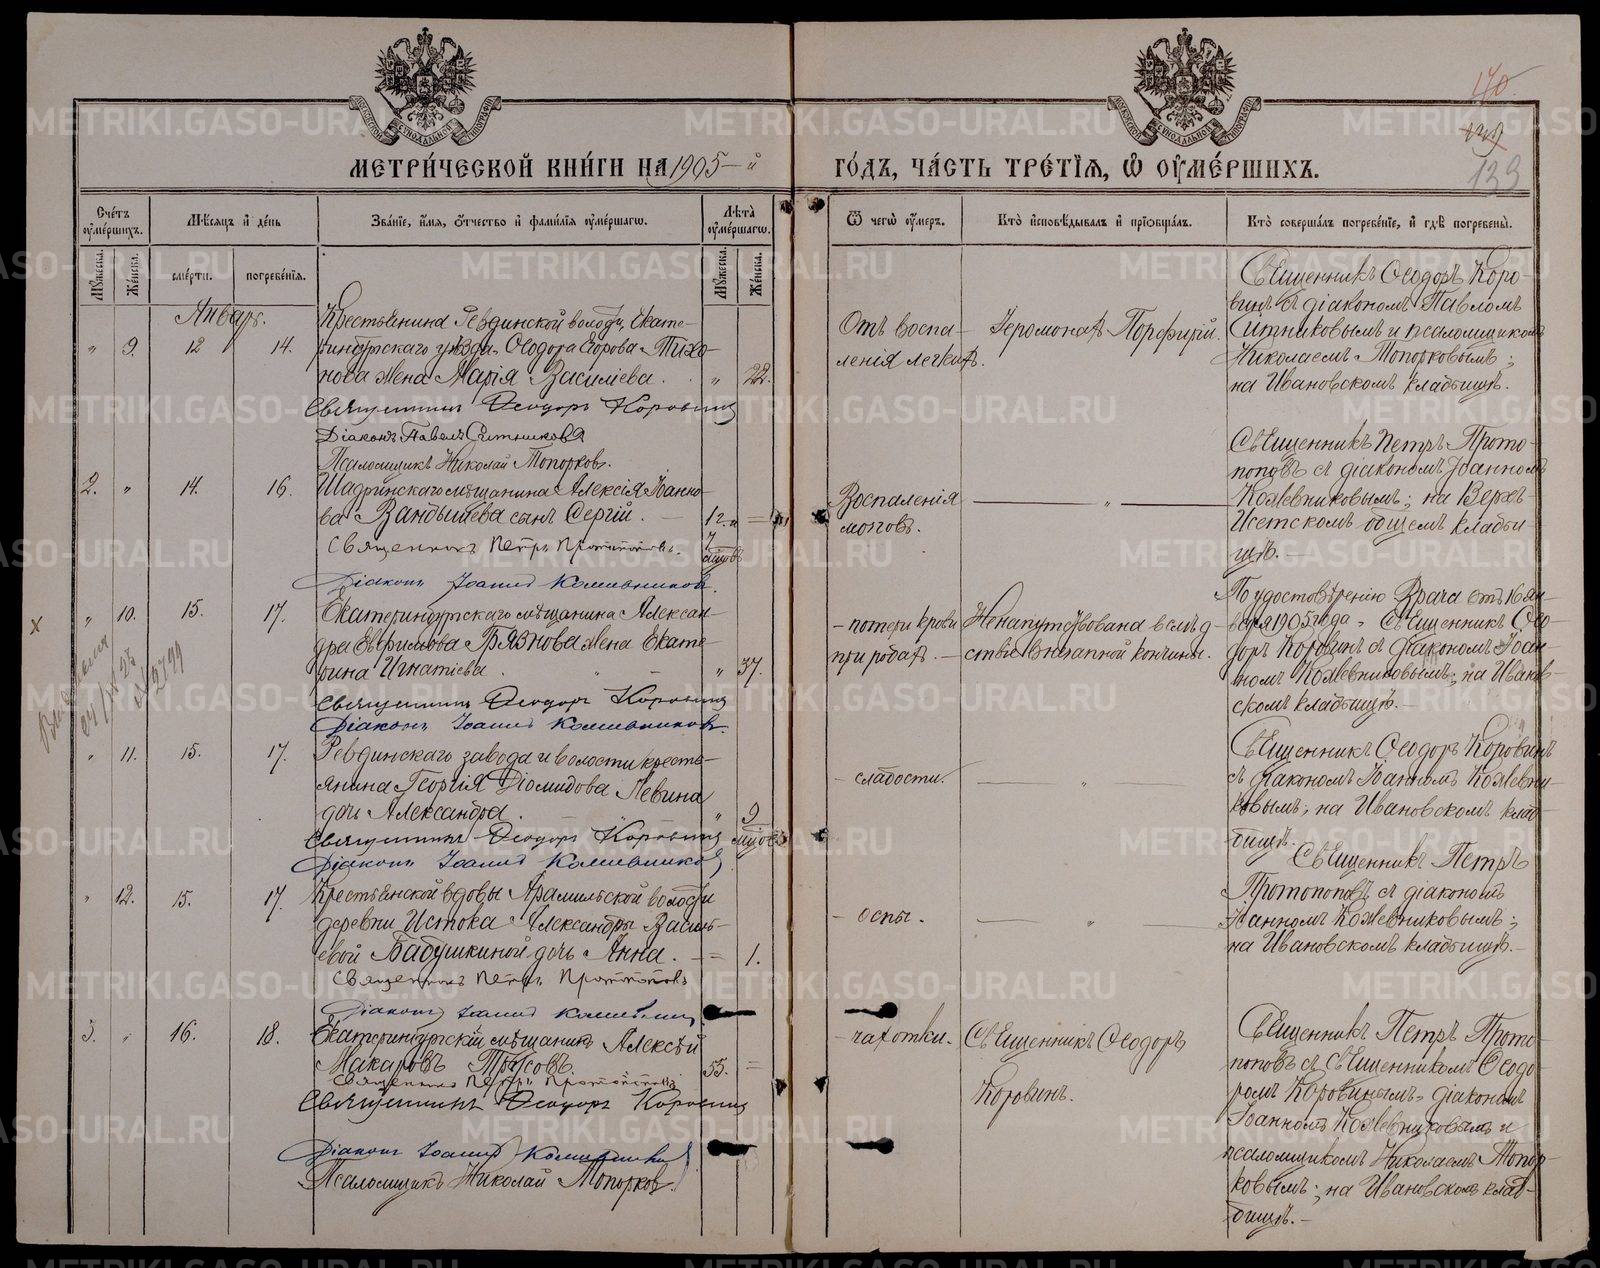 170.
139
133
МЕТРИ́ЧЕСКОЙ КНИ́ГИ НА 1905-й
ГО́ДЪ, ЧА́СТЬ ТРЕ́ТІѦ, Ѽ ОУМЕ́РШИХЪ.
Сче́тъ оумершихъ.
Мѣсяцъ и де́нь
Зва́ніе, и́мя, о́тчество и фами́лія оуме́ршагѡ.
Лѣта̀ оуме́ршагѡ.
Ѿ чегѡ̀ оу́меръ.
Кто̀ исповѣ́дывалъ и пріобща́лъ.
Кто̀ соверша́лъ погребе́ніе, и гдѣ̀ погребены̀.
Мужеска.
Женска.
сме́рти.
погребе́нія.
Мужеска.
Женска.
Январь.
" 9. 12 14.
Крестьянина Ревдинской волости, Екате-
ринбургскаго уѣзда Ѳеодора Егорова Тихо-
нова жена Марія Василіева. " 22.
Священникъ Ѳеодоръ Коровинъ
Діаконъ Павелъ Ситниковъ
Псаломщикъ Николай Топорковъ.
Отъ воспа-
ленія легкихъ.
Іеромонахъ Порфирій.
Священникъ Ѳеодоръ Коро-
винъ съ діакономъ Павломъ
Ситниковымъ и псаломщикомъ
Николаемъ Топорковымъ;
на Ивановскомъ кладбищѣ.
2. " 14. 16.
Шадринскаго мѣщанина Алексія Іоанно-
ва Вандышева сынъ Сергій. —
Священникъ Петръ Протопоповъ.
Діаконъ Іоаннъ Кожевниковъ.
Воспаленія
мозговъ.
— " —
Священникъ Петръ Прото-
поповъ съ діакономъ Іоанномъ
Кожевниковымъ; на Верхъ-
Исетскомъ общемъ кладби-
щѣ. —
" 10. 15. 17.
Екатеринбургскаго мѣщанина Алексан-
дра Евфимова Грязнова жена Екате-
рина Игнатіева. " 37.
Священникъ Ѳеодоръ Коровинъ
Діаконъ Іоаннъ Кожевниковъ.
— потери крови
при родахъ. —
Ненапутствована вслѣд-
ствіе внезапной кончины.
По удостовѣренію Врача отъ 16 ян-
варя 1905 года. Священникъ Ѳео-
доръ Коровинъ съ діакономъ Іоан-
номъ Кожевниковымъ; на Иванов-
скомъ кладбищѣ. —
" 11. 15. 17.
Ревдинскаго завода и волости кресть-
янина Георгія Діомидова Левина
дочь Александра. " 9 мѣсяцовъ
Священникъ Ѳеодоръ Коровинъ
Діаконъ Іоаннъ Кожевниковъ
— слабости.
— " —
Священникъ Ѳеодоръ Коровинъ
съ діакономъ Іоанномъ Кожевни-
ковымъ; на Ивановскомъ клад-
бищѣ.
" 12. 15. 17.
Крестьянской вдовы Арамильской волости
деревни Истока Александры Василь-
евой Бабушкиной дочь Анна. — 1.
Священникъ Петръ Протопоповъ
Діаконъ Іоаннъ Кожевниковъ
— оспы.
— " —
Священникъ Петръ
Протопоповъ съ діакономъ
Іоанномъ Кожевниковымъ;
на Ивановскомъ кладбищѣ. —
3. " 16. 18.
Екатеринбургскій мѣщанинъ Алексѣй
Макаровъ Трусовъ. 55. =
Священникъ Петръ Протопоповъ
Священникъ Ѳеодоръ Коровинъ
Діаконъ Іоаннъ Кожевниковъ
Псаломщикъ Николай Топорковъ.
— чахотки.
Священникъ Ѳеодоръ
Коровинъ.
Священникъ Петръ Прото-
поповъ съ священникомъ Ѳеодо-
ромъ Коровинымъ, діакономъ
Іоанномъ Кожевниковымъ и
псаломщикомъ Николаемъ Топор-
ковымъ; на Ивановскомъ клад-
бищѣ. —
METRIKI.GASO-URAL.RU